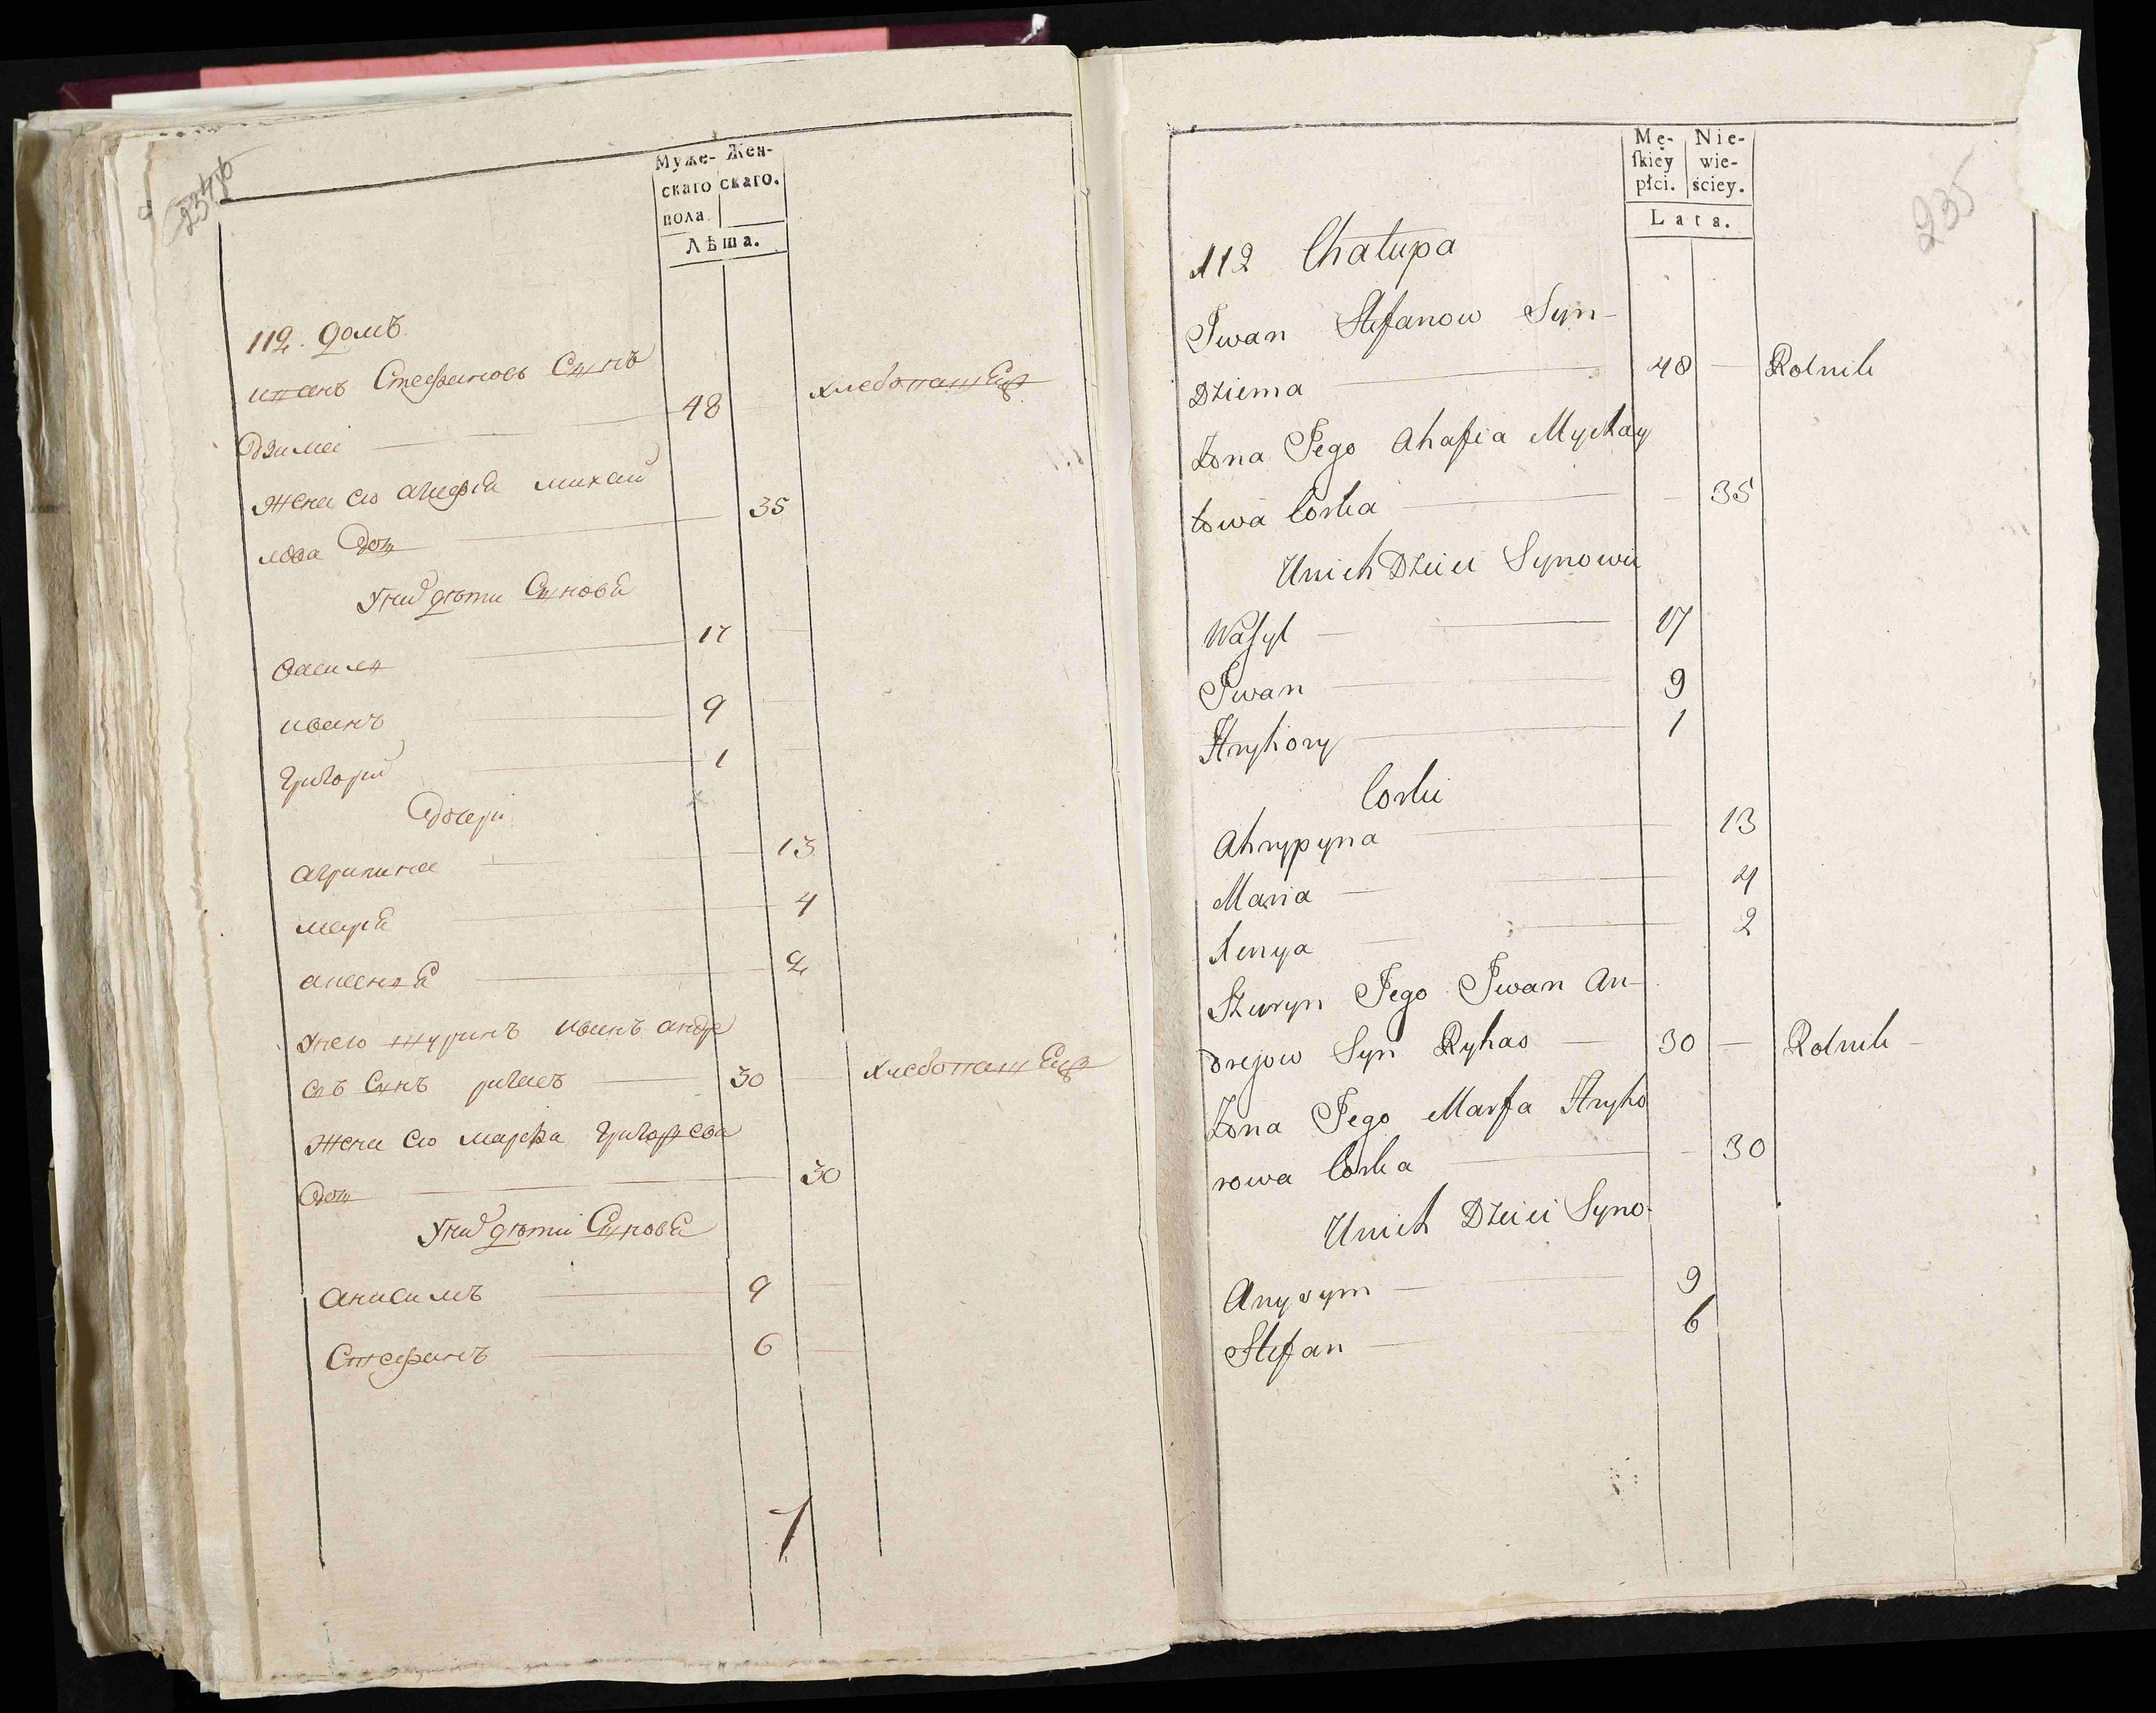 234об
Муже- Жен-
скаго скаго.
пола
Лѣта.
112. домъ.
иванъ Стефановъ Сынъ
Дзима 48 хлебопашецъ
жена его агафiя михай
лова дощ 35
У них дѣти Сыновя
василь 17
иванъ 9
григорий 1
дочери
агрипина 13
мария 4
аксенья 2
У него шуринъ иванъ андре
евъ Сынъ ригасъ 30 хлебопашецъ
жена его марфа григорьева
дощ 30
У них дѣти Сыновя
анисимъ 9
Стефанъ 6
235
Mę- Nie-
ſkiey wie-
płci. ściey.
Lata.
112 Chałupa
Iwan Stefanow Syn-
Dziema 48 Rolnik
Żona Jego Ahafia Mychay
łowa Corka 35
U nich Dzieci Synowie
Waſyl 17
Iwan 9
Hryhory 1
Corki
Ahrypyna 13
Maria 4
Xenya 2
Szuryn Jego Iwan An-
drejow Syn Ryhas 30 Rolnik
Żona Jego Marfa Hryho
rowa Corka 30
U nich Dzieci Syno-
Anysym 9
Stefan 6